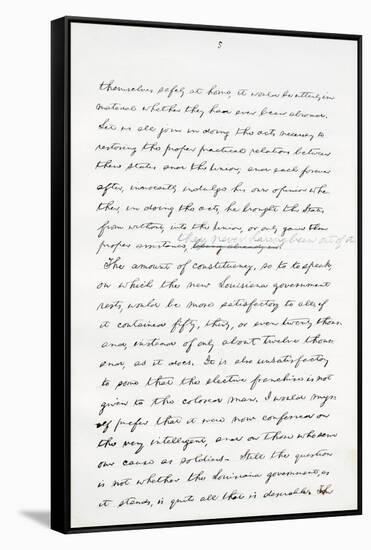 5
themselves safely at home, it would be utterly im
material whether they had ever been abroad.
Let us all join in doing the acts necessary to
restoring the proper practical relations between
these states and the Union; and each forever
after, innocently indulge his own opinion whe
ther, in doing the acts, he brought the States
from without, into the Union, or only gave them
proper assistance, they never having been out of it.
The amount of constituency, so to speak,
on which the new Louisiana government
rests, would be more satisfactory to all, if
it contained fifty, thirty, or even twenty thou
sand, instead of only about twelve thou
sand, as it does. It is also unsatisfactory
to some that the elective franchise is not
given to the colored man. I would my
self prefer that it were now conferred on
the very intelligent, and on those who serve
our cause as soldiers. Still the question
is not whether the Louisiana government, as
it stands, is quite all that is desirable. The